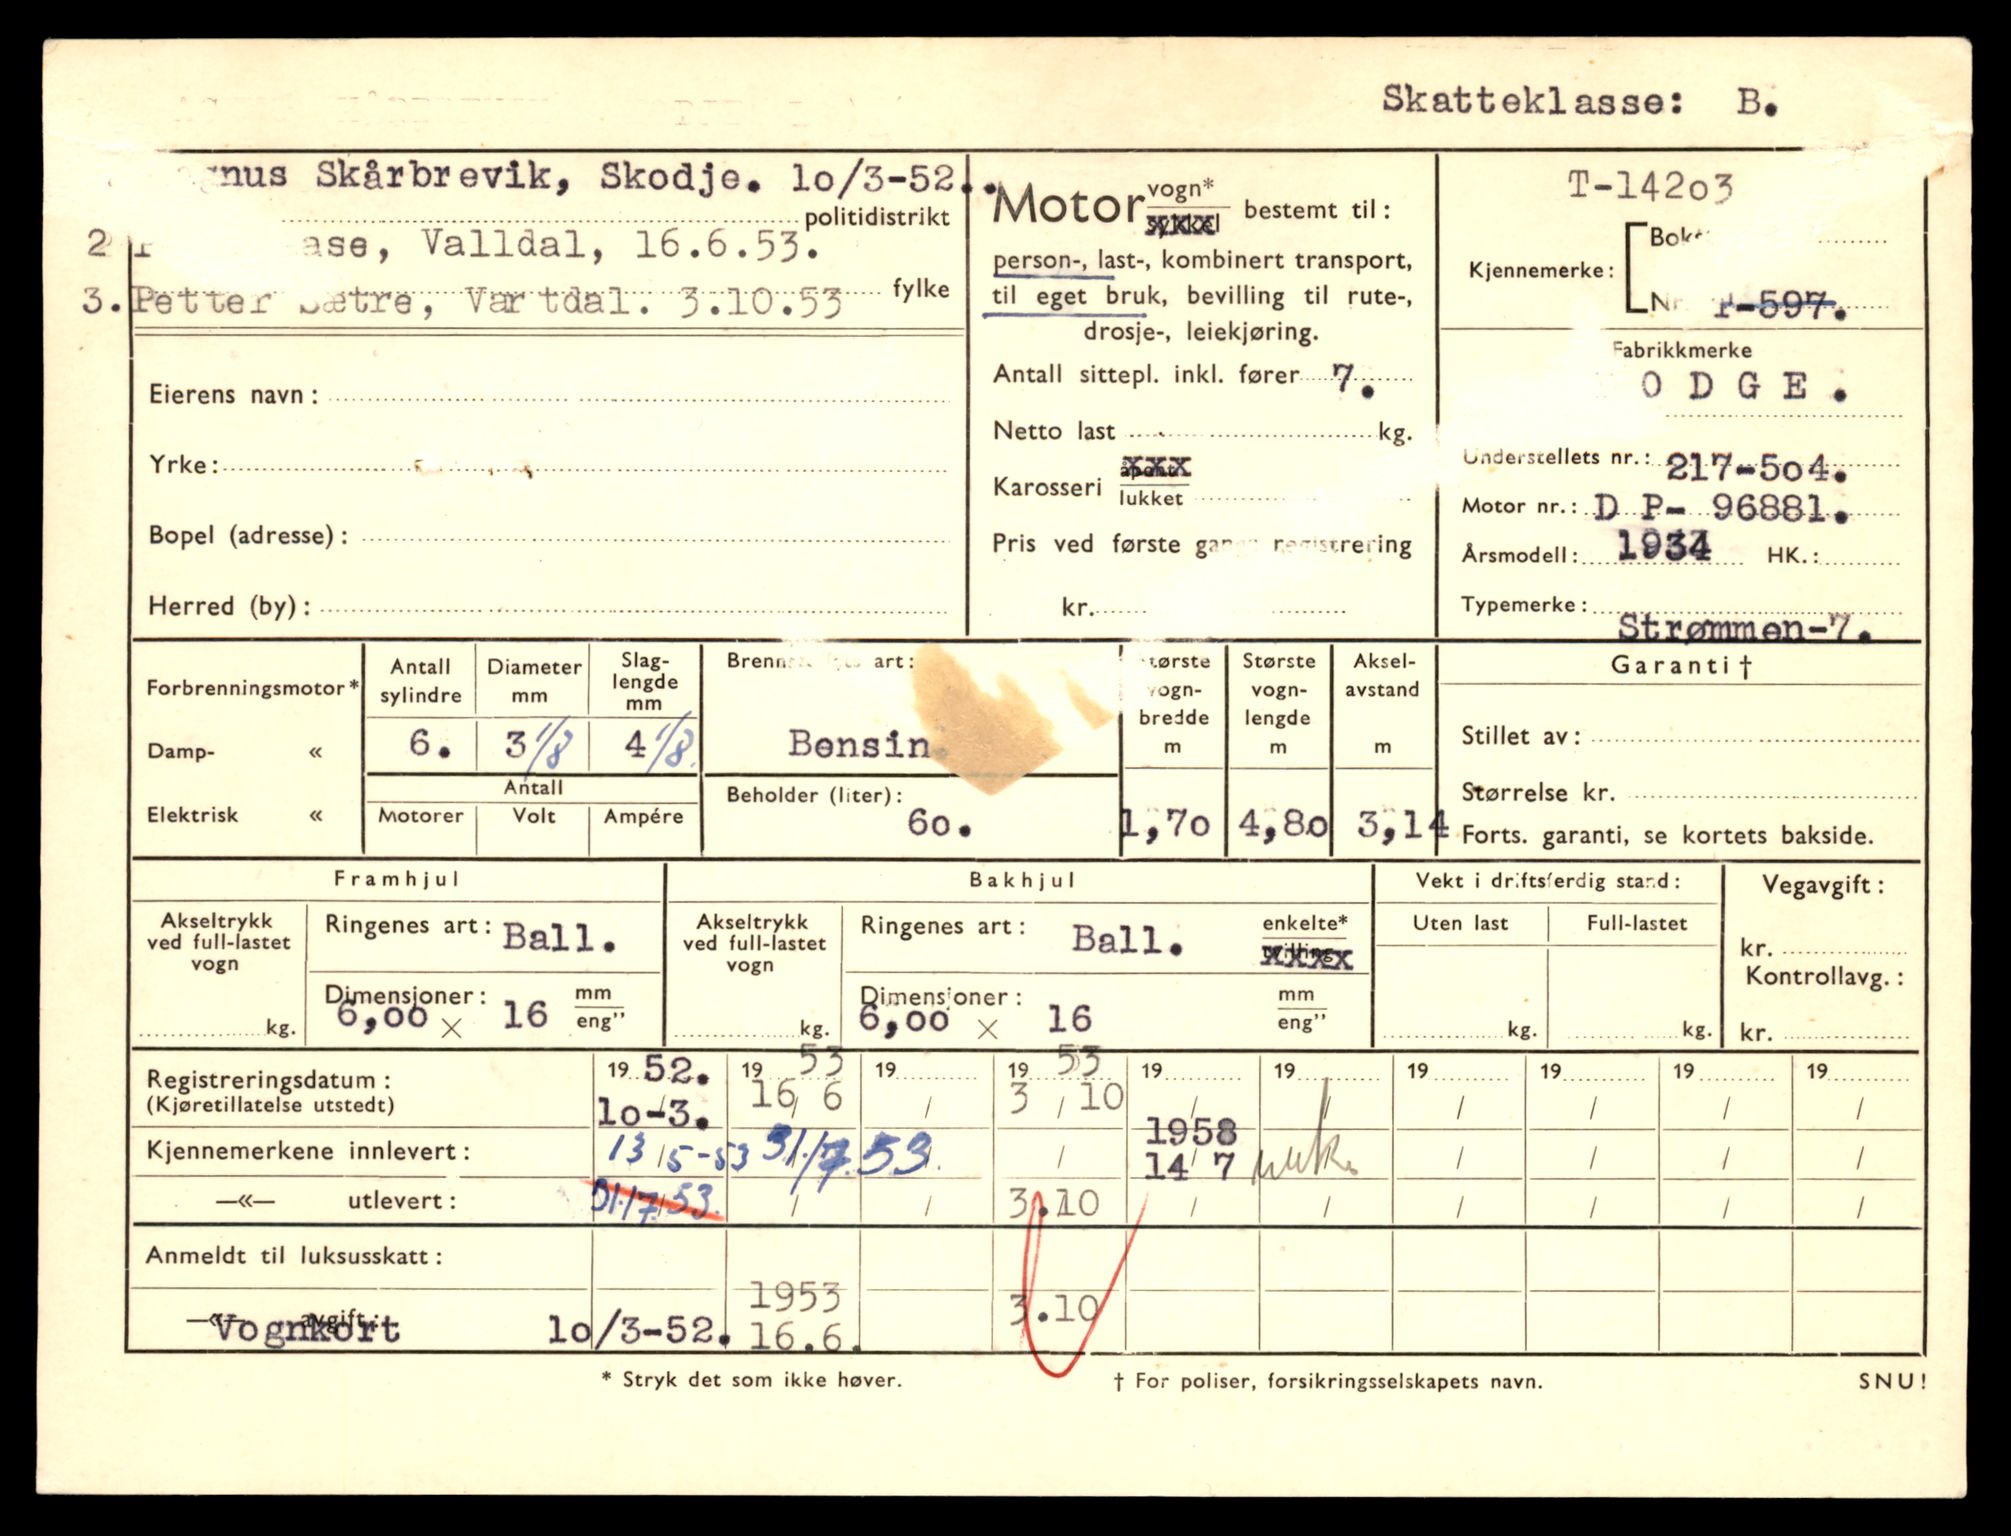 Skatteklasse: B.
gnus Skårbrevik, Skodje. lo/3-52.
politidistrikt
2 ase, Valldal, 16.6.53.
3. Petter Sætre, Vartdal. 3.10.53 fylke
Eierens navn:
Yrke:
Bopel (adresse):
Herred (by):
Motor vogn* sykkel bestemt til:
person-, last-, kombinert transport,
til eget bruk, bevilling til rute-,
drosje-, leiekjøring.
Antall sittepl. inkl. fører 7.
Netto last kg.
Karosseri åpent xxx
lukket
Pris ved første gangs registrering
kr.
T-142o3
Kjennemerke:
Nr. T-597.
Fabrikkmerke
ODGE.
Understellets nr.: 217-5o4.
Motor nr.: D P- 96881.
Årsmodell: 1934 HK.:
Typemerke:
Strømmen-7.
Forbrenningsmotor*
Damp- «
Elektrisk «
Antall sylindre
6.
Diameter mm
3 1/8
Slag-lengde mm
4 1/8.
Antall
Motorer Volt Ampére
art:
Bensin.
Beholder (liter):
6o.
Største vogn-bredde m
1,7o
Største vogn-lengde m
4,8o
Aksel-avstand m
3,14
Garanti †
Stillet av:
Størrelse kr.
Forts. garanti, se kortets bakside.
Framhjul
Akseltrykk ved full-lastet vogn
kg.
Ringenes art: Ball.
Dimensjoner: mm
6,oo × 16 eng”
Bakhjul
Akseltrykk ved full-lastet vogn
kg.
Ringenes art: Ball. enkelte*
tvilling xxxx
Dimensjoner: mm
6,oo × 16 eng”
Vekt i driftsferdig stand:
Uten last Full-lastet
kg. kg.
Vegavgift:
kr.
Kontrollavg.:
kr.
Registreringsdatum: 19 52. 19 53 19 19 53 19 19 19 19 19 19
(Kjøretillatelse utstedt) lo-3. 16/6 / 3/10 / / / / / /
1958
Kjennemerkene innlevert: 13/5-53 31/7.53. / 14 7 / / / / /
—«— utlevert: 31/7.53. / / 3.10 / / / / / /
Anmeldt til luksusskatt:
1953
—«— avgift: 3.10
Vognkort lo/3-52. 16.6.
* Stryk det som ikke høver.
† For poliser, forsikringsselskapets navn.
SNU!